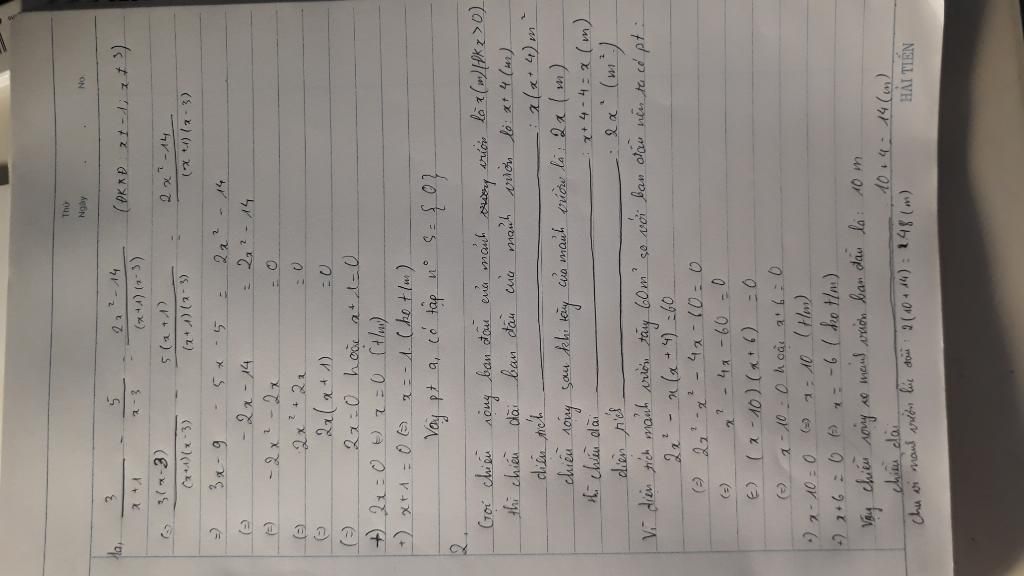 Thứ
Ngày No.
1a, 3/(x+1) - 5/(x-3) = (2x²-14)/((x+1)(x-3)) (ĐKXĐ: x ≠ -1; x ≠ 3)
(=) 3(x-3)/((x+1)(x-3)) - 5(x+1)/((x+1)(x-3)) = (2x²-14)/((x+1)(x-3))
=) 3x - 9 - 5x - 5 = 2x² - 14
(=) -2x - 14 = 2x² - 14
(=) -2x² - 2x = 0
(=) 2x² + 2x = 0
(=) 2x(x+1) = 0
(=) 2x = 0 hoặc x+1 = 0
+) 2x = 0 (=) x = 0 (t/m)
+) x+1 = 0 (=) x = -1 (ko t/m)
Vậy pt a, có tập n° S = {0}
2.
Gọi chiều rộng ban đầu của mảnh vườn là x(m) (ĐK x > 0)
thì chiều dài ban đầu của mảnh vườn là: x+4 (m)
diện tích : x(x+4) m²
chiều rộng sau khi tăng của mảnh vườn là: 2x (m)
thì chiều dài : x+4-4 = x (m)
diện tích : 2x² (m²)
Vì diện tích mảnh vườn tăng 60m² so với ban đầu nên ta có pt:
2x² - x(x+4) = 60
(=) 2x² - x² - 4x - 60 = 0
(=) x² - 4x - 60 = 0
(=) (x-10)(x+6) = 0
(=) x-10 = 0 hoặc x+6 = 0
+) x-10 = 0 (=) x = 10 (t/m)
+) x+6 = 0 (=) x = -6 (ko t/m)
Vậy chiều rộng mảnh vườn ban đầu là: 10 m
chiều dài 10+4 = 14 (m)
chu vi mảnh vườn ban đầu: 2(10+14) = 48 (m)
HẢI TIẾN